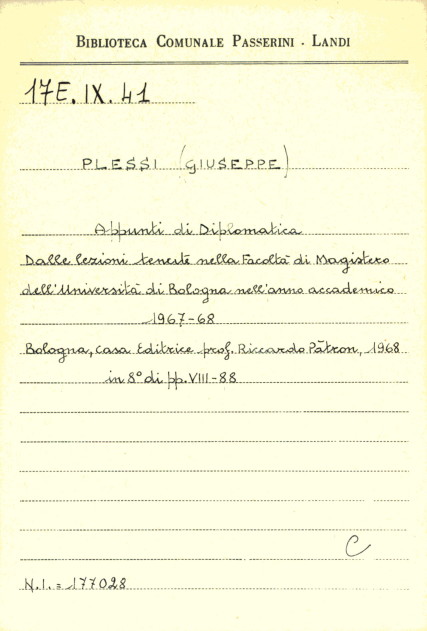 BIBLIOTECA COMUNALE PASSERINI - LANDI
17E. IX. 41
PLESSI (GIUSEPPE)
Appunti di Diplomatica
Dalle lezioni tenute nella Facoltà di Magistero
dell'Università di Bologna nell'anno accademico
1967-68
Bologna, Casa Editrice prof. Riccardo Pàtron, 1968
in 8° di pp. VIII-88
C
N.I. = 177028